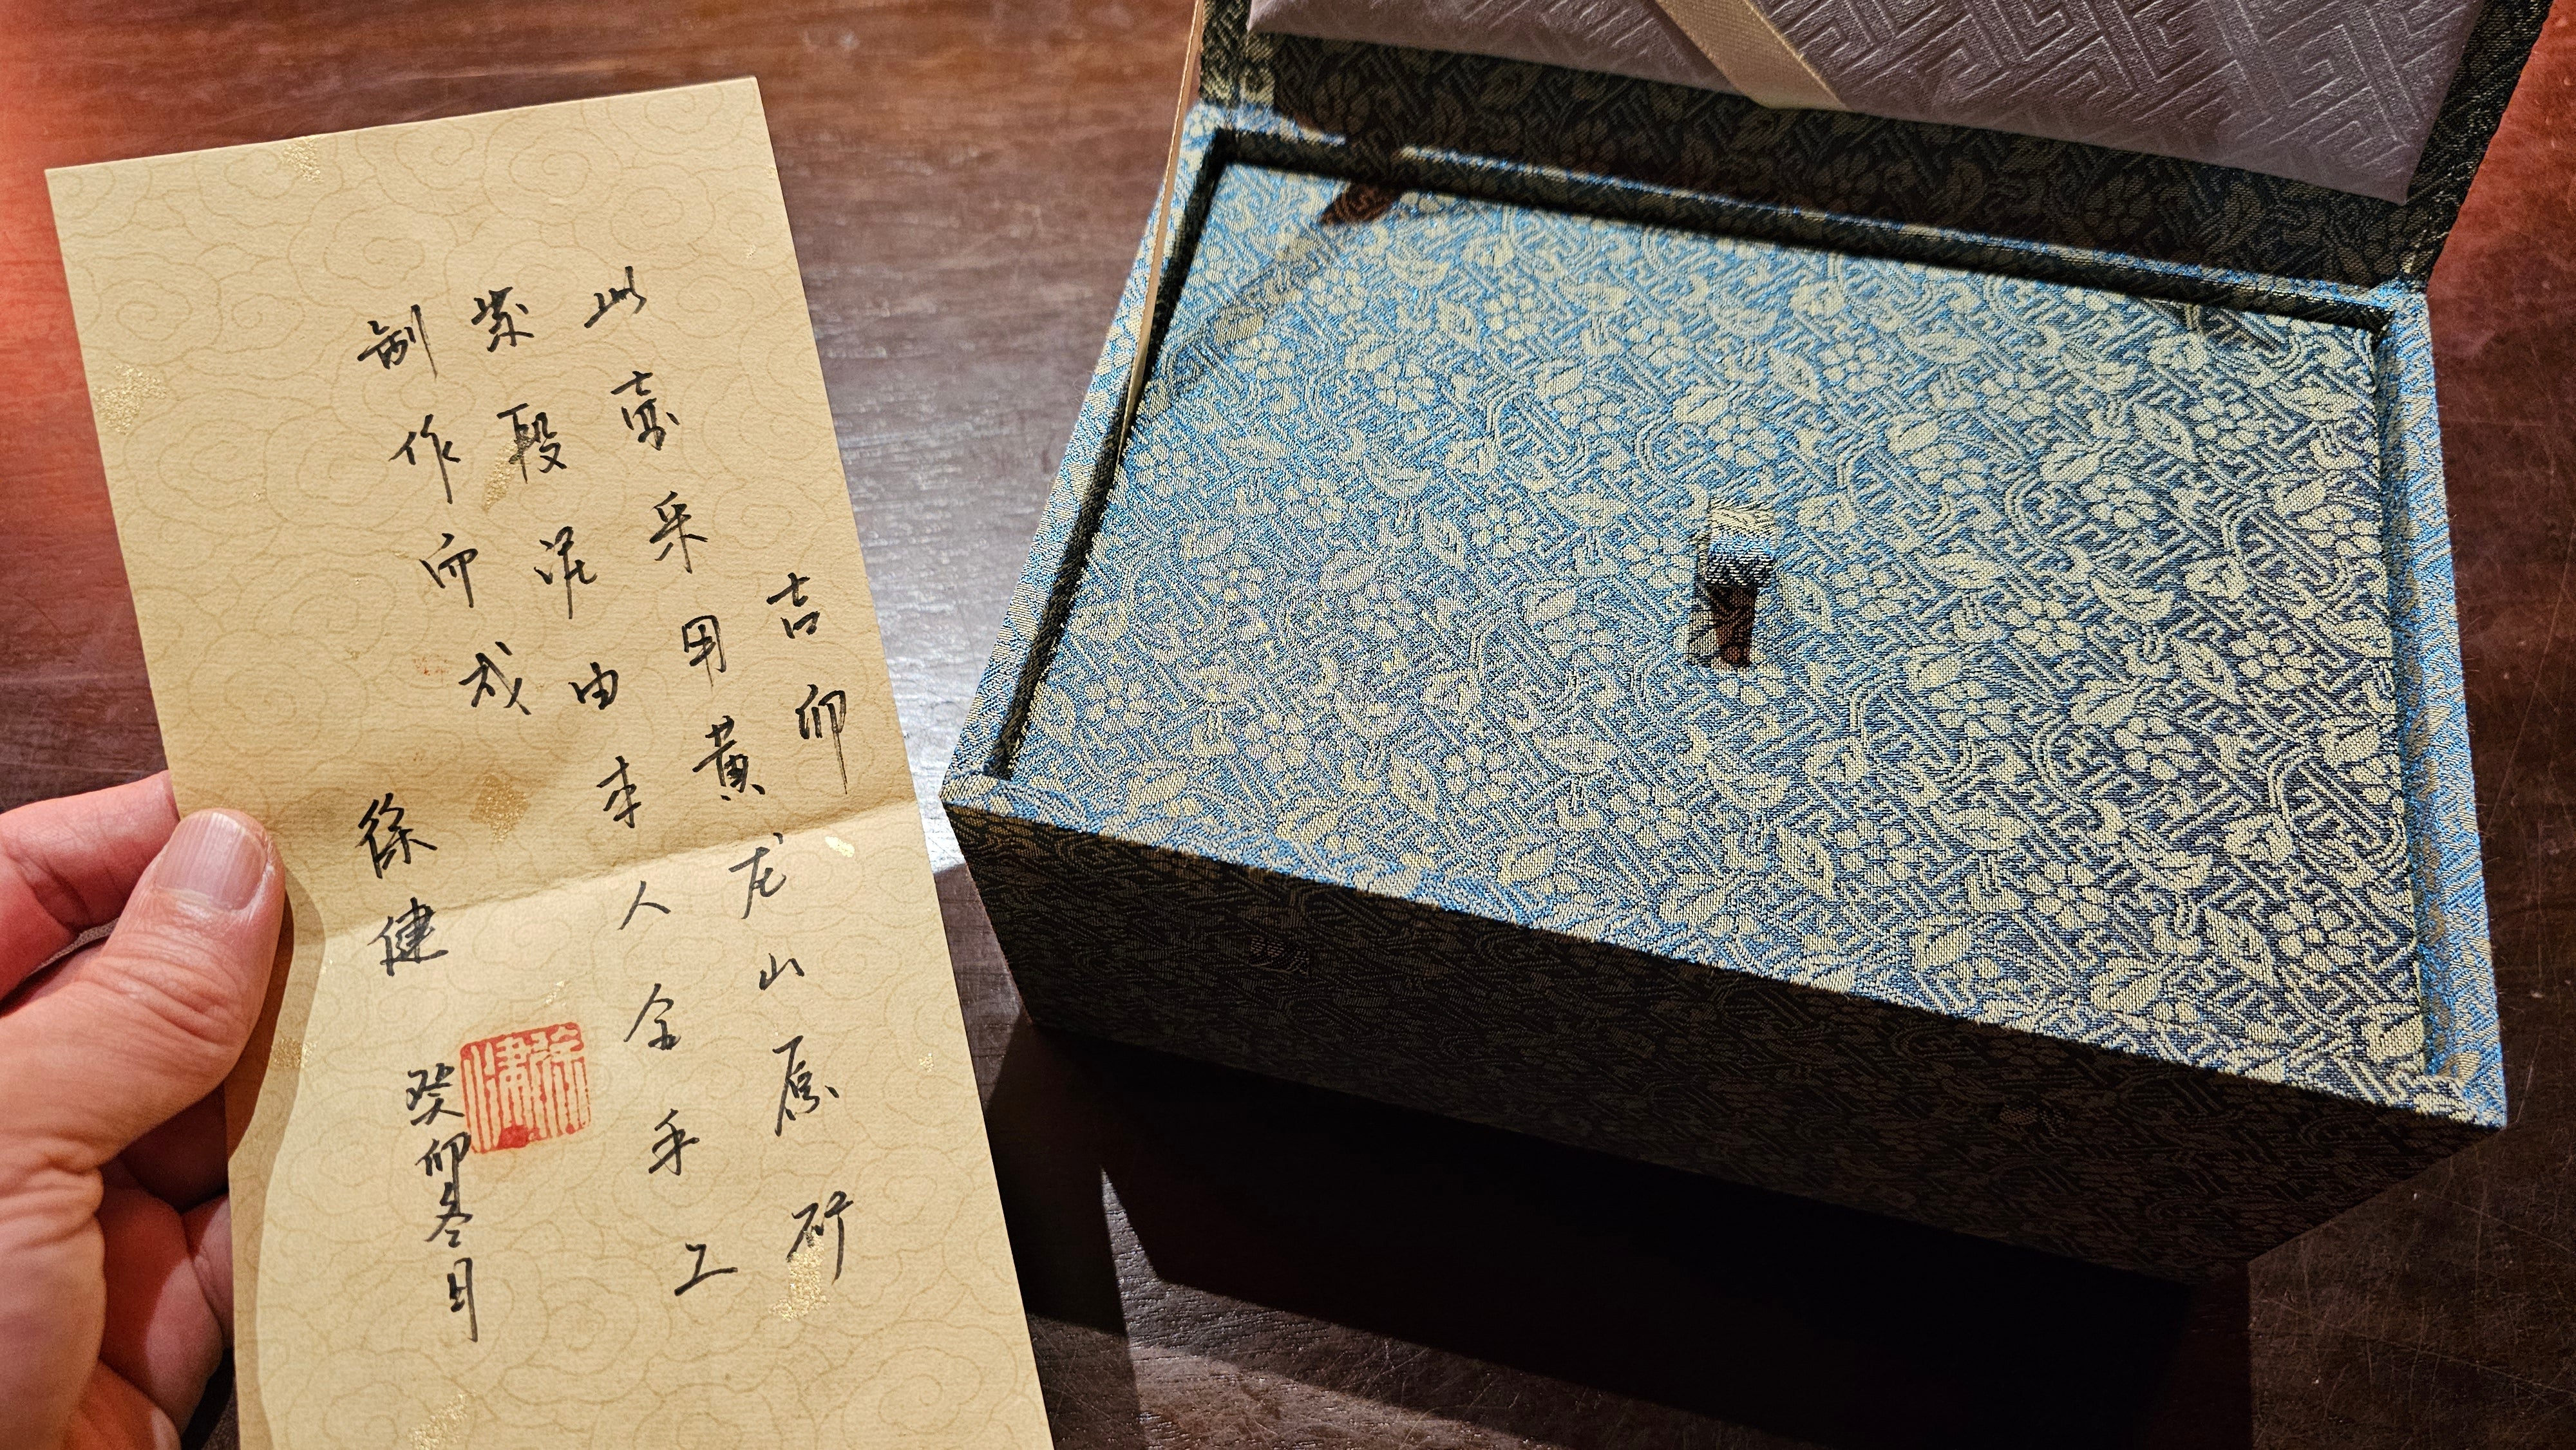 吉卯
此壶采用黄龙山原矿
紫段泥由本人全手工
制作而成
徐健
癸卯冬月
徐健